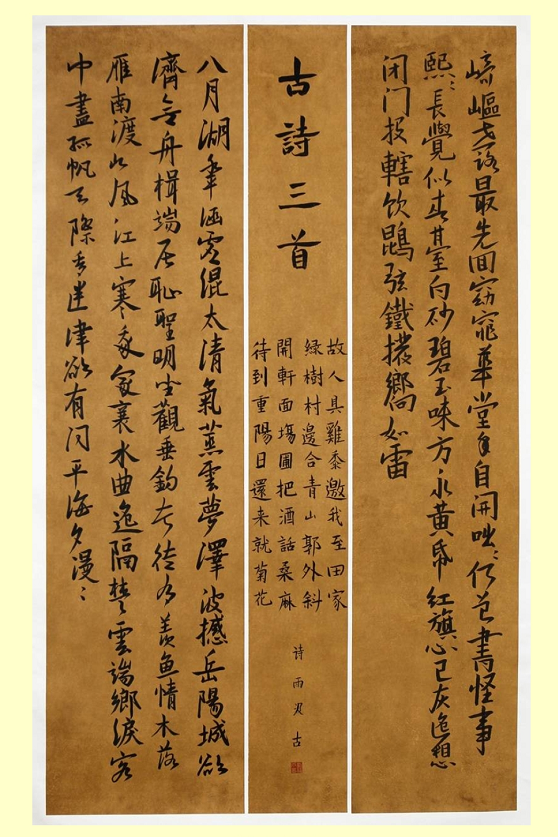 崎嶇世路最先回窈窕華堂手自開咄々何曾書怪事
熙々長覺似春臺白砂碧玉味方永黄帋紅旗心已灰遥想
闭门投轄饮鵾弦鐵撥響如雷
古詩三首
故人具雞黍邀我至田家
綠樹村邊合青山郭外斜
開軒面場圃把酒話桑麻
待到重陽日還来就菊花
诗雨
八月湖水平涵虛混太清氣蒸雲夢澤波撼岳陽城欲
濟無舟楫端居恥聖明坐觀垂釣者徒有羨鱼情木落
雁南渡北风江上寒我家襄水曲遥隔楚雲端鄉淚客
中盡孤帆天際看迷津欲有问平海夕漫々